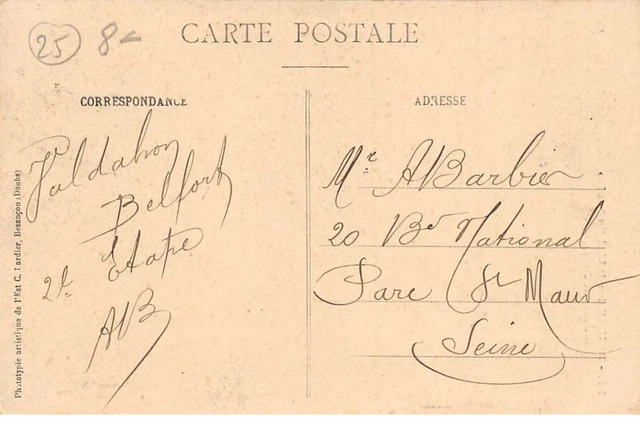 25 8-
CARTE POSTALE
CORRESPONDANCE
ADRESSE
Valdahon
Belfort
2e Etape
AB
Mr ABarbier
20 Bd National
Parc St Maur
Seine
Phototypie artistique de l'Est C. Lardier, Besançon (Doubs)